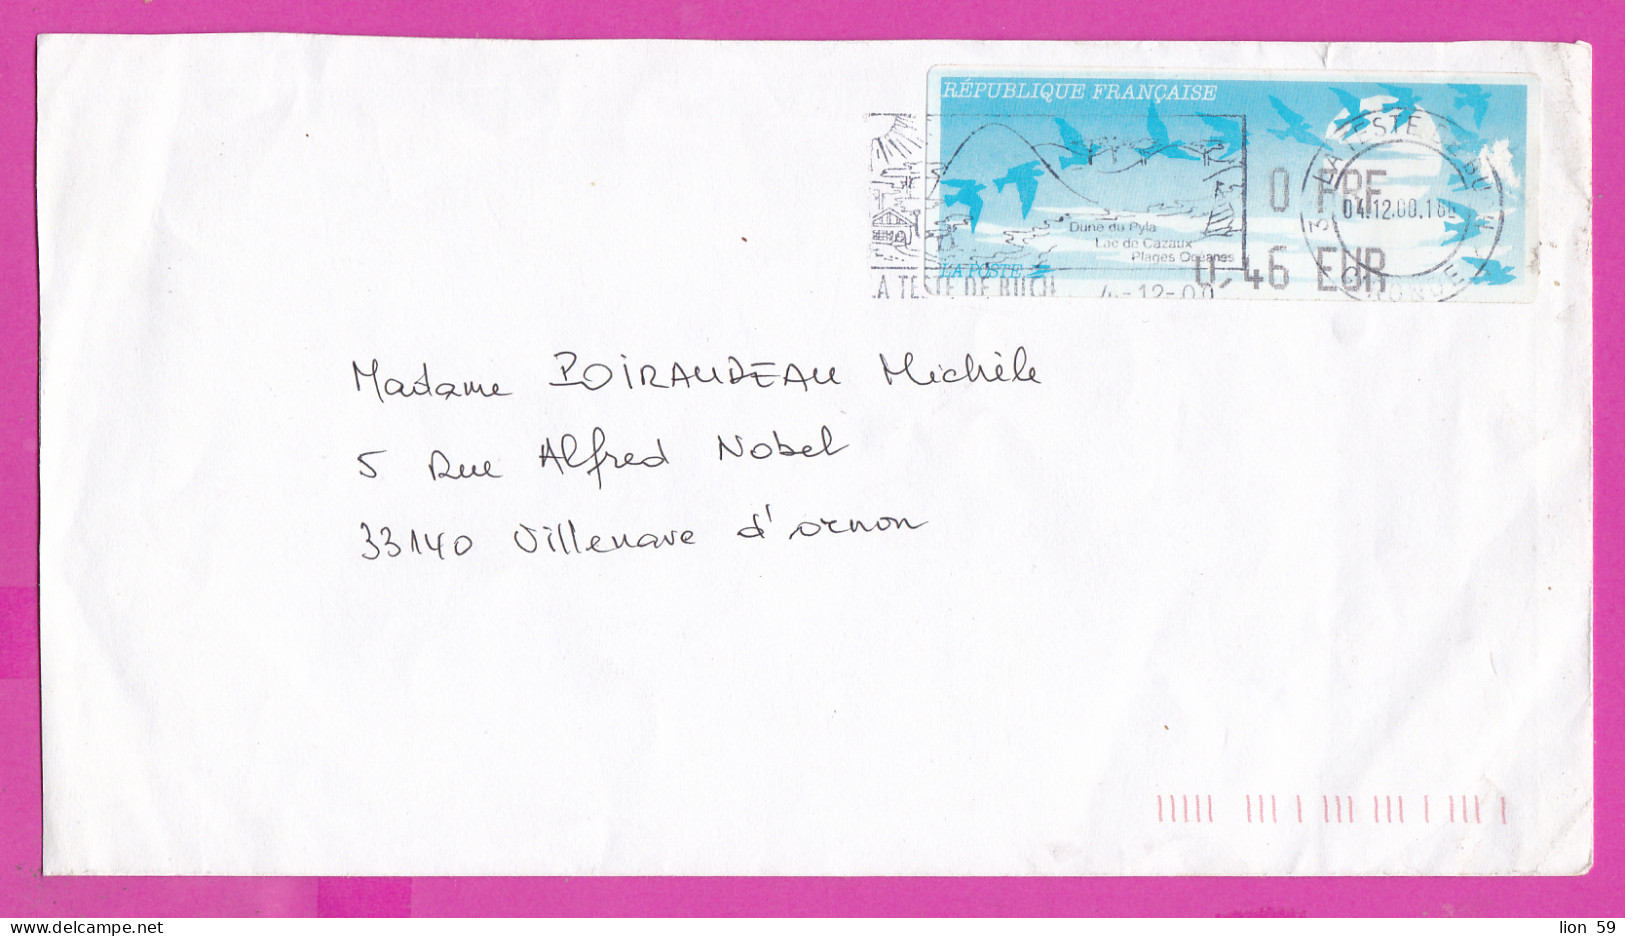 RÉPUBLIQUE FRANÇAISE
0 FRF
04.12.00.18
Dune du Pyla
Lac de Cazaux
Plages Océanes
LA POSTE
0,46 EUR
LA TESTE DE BUCH
4-12-00
Madame POIRAUDEAU Michèle
5 Rue Alfred Nobel
33140 Villenave d'ornon
lion 59